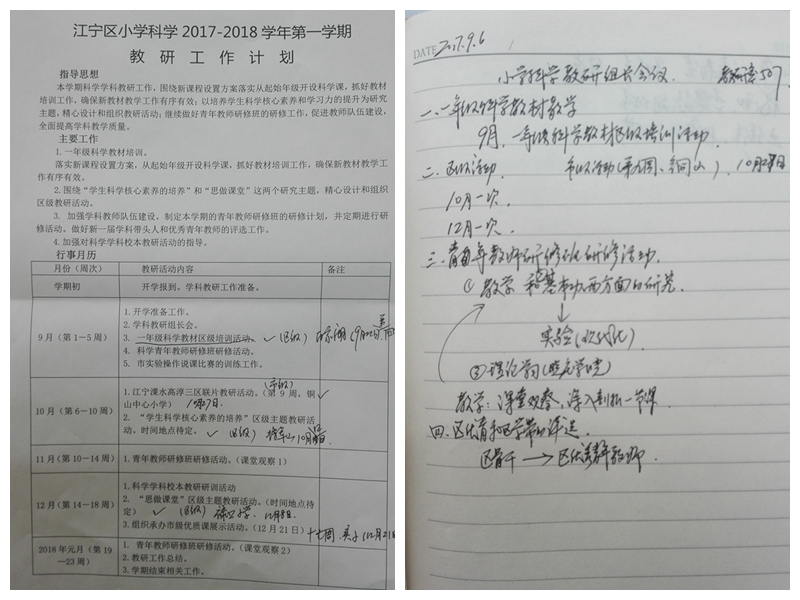 江宁区小学科学2017-2018学年第一学期
教研工作计划
指导思想
本学期科学学科教研工作，围绕新课程设置方案落实从起始年级开设科学课，抓好教材
培训工作，确保新教材教学工作有序有效；以培养学生科学核心素养和学习力的提升为研究
主题，精心设计和组织教研活动；继续做好青年教师研修班的研修工作，促进教师队伍建设，
全面提高科学教学质量。
主要工作
1.一年级科学教材培训。
落实新课程设置方案，从起始年级开设科学课，抓好教材培训工作，确保新教材教学工
作有序有效。
2.围绕“学生科学核心素养的培养”和“思做课堂”这两个研究主题，精心设计和组织
区级教研活动。
3. 加强学科教师队伍建设，制定本学期的青年教师研修班的研修计划，并定期进行研
修活动。做好新一届学科带头人和优秀青年教师的评选工作。
4.加强对科学学科校本教研活动的指导。
行事月历
月份（周次） 教研活动内容 备注
学期初 开学报到。学科教研工作准备。
9月（第1-5周）
1.开学准备工作。
2.学科教研组长会。
3. 一年级科学教材区级培训活动。 ✓ (区级)
4. 科学青年教师研修班研修活动。
5. 市实验操作说课比赛的训练工作。
10月（第6-10周）
1.江宁溧水高淳三区联片教研活动。（第9周，铜
山中心小学） (市级) ✓
2. “学生科学核心素养的培养”区级主题教研活
动。时间地点待定。 ✓ (区级)
11月（第10-14周） 1.青年教师研修班研修活动。（课堂观察1）
12月（第14-18周）
1.科学学科校本教研研训活动
2. “思做课堂”区级主题教研活动。（时间地点待
定） ✓ (区级)
3.组织承办市级优质课展示活动。（12月21日） 十七周
2018年元月（第19
—23周）
1. 青年教师研修班研修活动。（课堂观察2）
2.教研工作总结。
3.学期结束相关工作。
DATE 2017.9.6
小学科学教研组长会议. 教研室507.
一、一年级科学教材教学
9月. 一年级科学教材区级培训活动.
二、区级活动. 市级活动(第九周、铜山)
10月一次.
12月一次.
三、青年教师研修班研修活动.
① 教学和基本功两方面的研薹.
↓
实验(现代化)
② 理论学习
教学: 课堂观察, 深入剖析一节课
四、区优青和区学带的评选.
区骨干 → 区优秀青年教师.